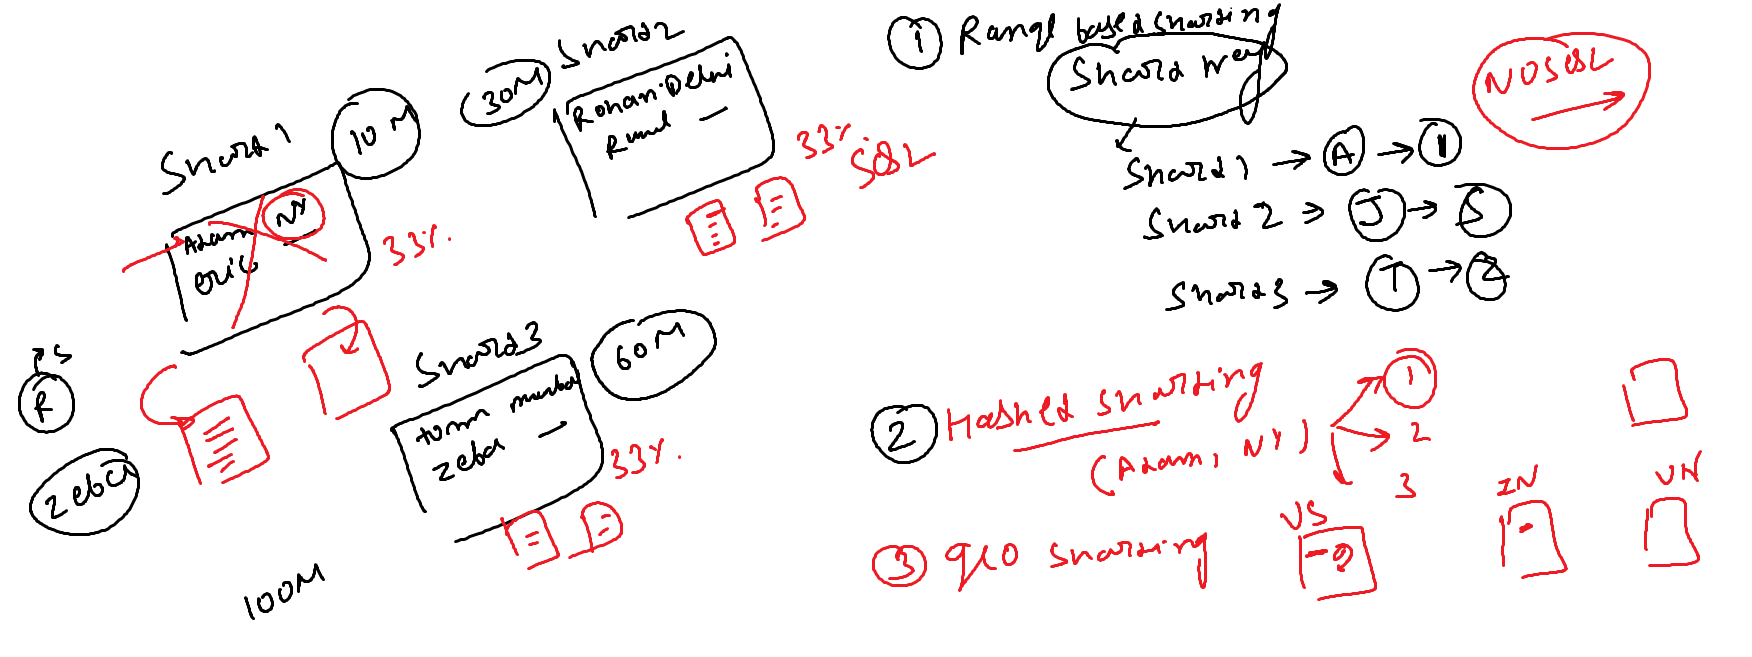 Shard 1
10 M
Adam NY
eric
33%.
30M
Shard2
Rohan. Delhi
Rumel
33%
SQL
Shard3
60M
tom mumbai
zeba
33%.
R S
Zebra
100M
1 Range based sharding
Shard key
Shard 1 → A → I
Shard 2 → J → S
Shard3 → T → Z
NOSQL
2 Hashed sharding
(Adam, NY)
1
2
3
3 geo sharding
US
IN
UK